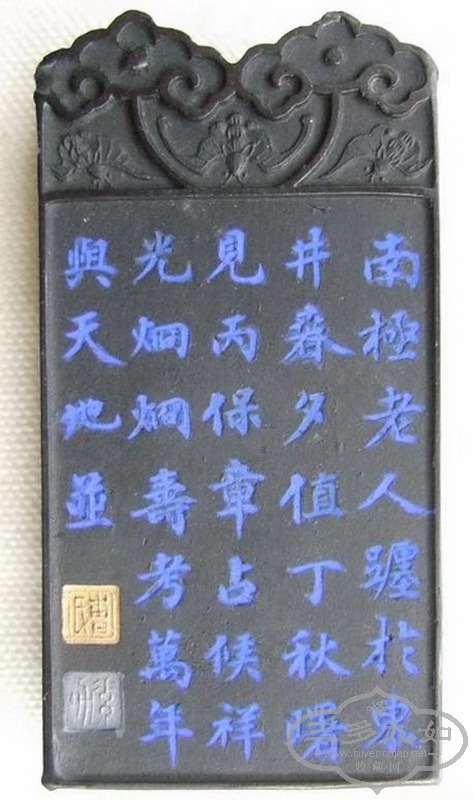 南極老人躔於東
井春夕值丁秋曙
見丙保章占候祥
光烱烱壽考萬年
與天地並